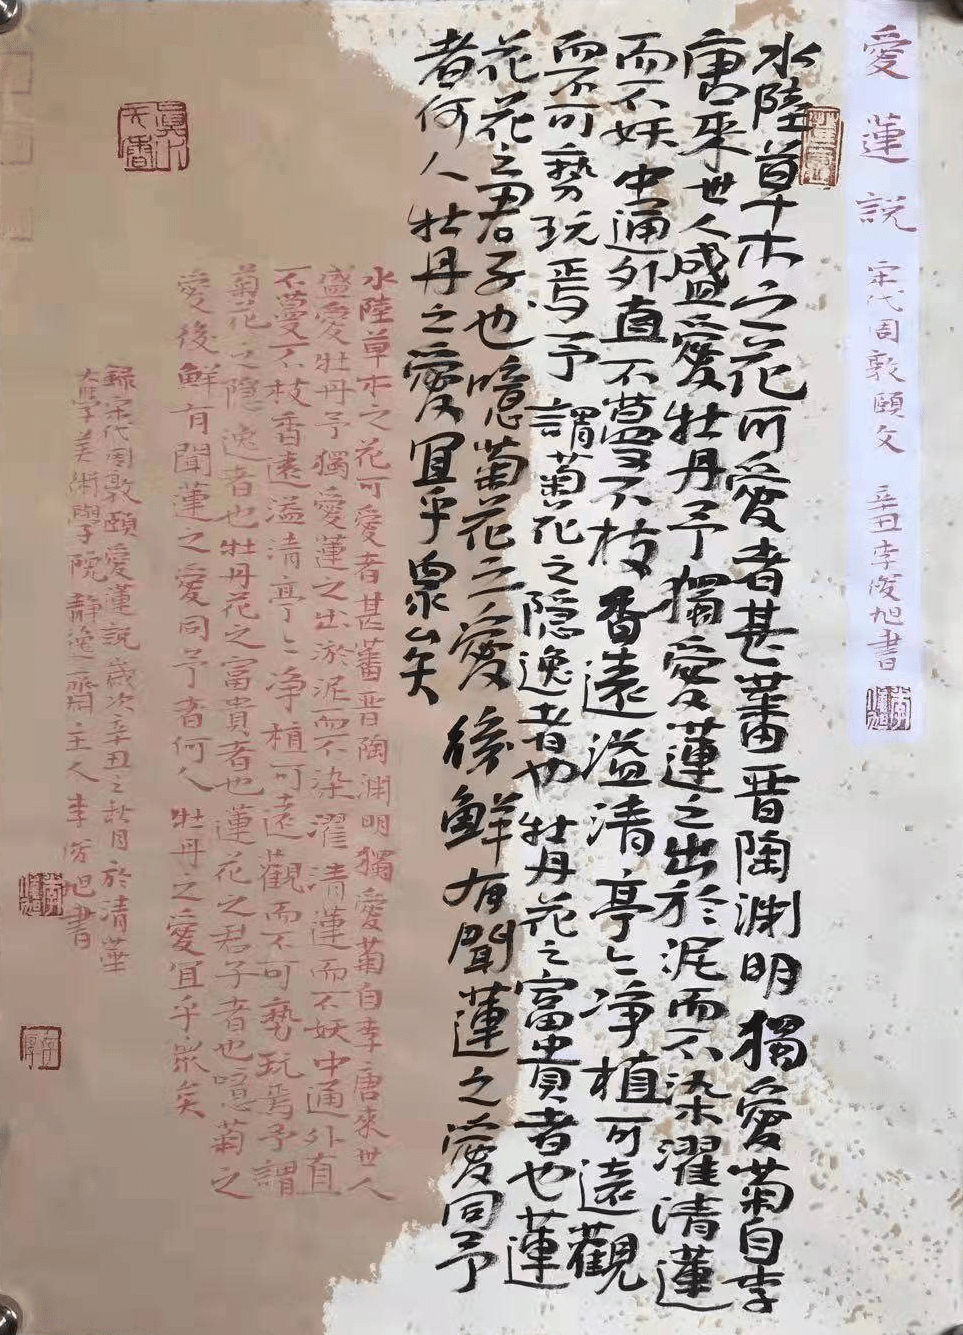 愛蓮説 宋代周敦頤文 辛丑李俊旭書
水陸草木之花可愛者甚蕃晋陶渊明獨愛菊自李
唐來世人盛愛牡丹予獨愛蓮之出於泥而不染濯清蓮
而不妖中通外直不蔓不枝香遠溢清亭〻净植可遠觀
而不可勢玩焉予謂菊花之隠逸者也牡丹花之富貴者也蓮
花花之君子也噫菊花之愛後鮮有聞蓮之愛同予
者何人牡丹之愛宜乎眾矣
水陸草木之花可愛者甚蕃晋陶渊明獨愛菊自李唐來世人
盛愛牡丹予獨愛蓮之出淤泥而不染濯清蓮而不妖中通外直
不蔓不枝香遠溢清亭〻净植可遠觀而不可勢玩焉予謂
菊花之隠逸者也牡丹花之富貴者也蓮花之君子者也噫菊之
愛後鮮有聞蓮之愛同予者何人牡丹之愛宜乎眾矣
録宋代周敦頤愛蓮説歲次辛丑之秋月於清華
大學美術學院靜逸齋主人李俊旭書